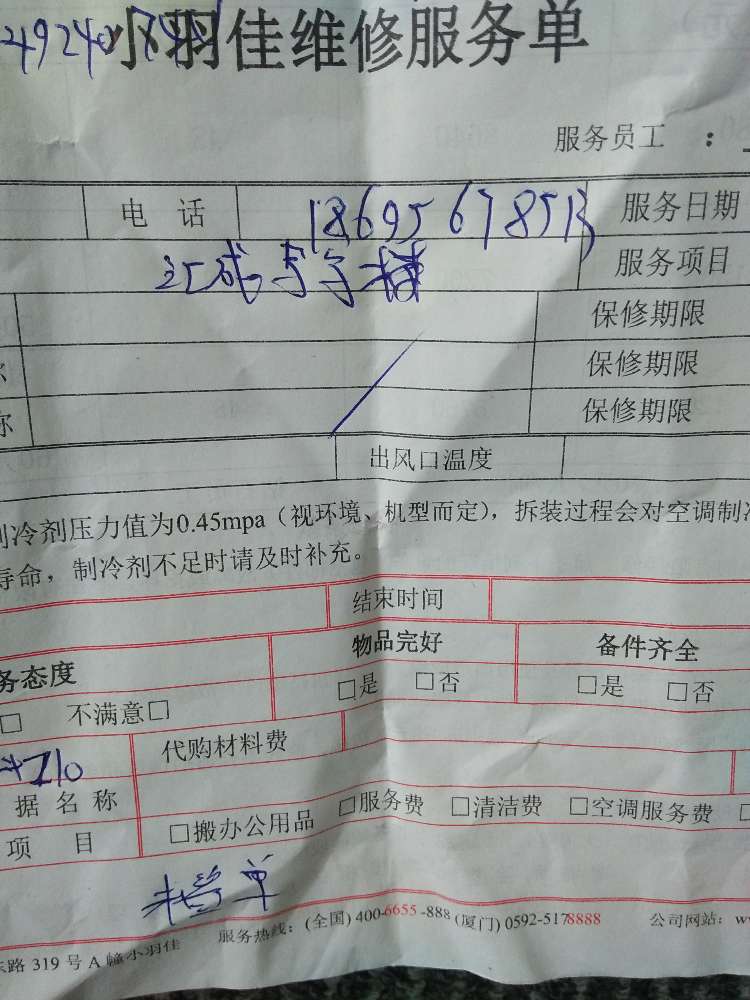 小羽佳维修服务单
服务员工 ：
电 话 18695678513 服务日期
服务项目
保修期限
保修期限
称 保修期限
出风口温度
制冷剂压力值为0.45mpa（视环境、机型而定），拆装过程会对空调制冷
寿命，制冷剂不足时请及时补充。
结束时间
务态度 物品完好 备件齐全
□ 不满意□ □是 □否 □是 □否
代购材料费
据 名 称
项 目 □搬办公用品 □服务费 □清洁费 □空调服务费
服务热线：(全国) 400-6655-888 (厦门) 0592-5178888 公司网站：w
东路 319 号 A 幢小羽佳